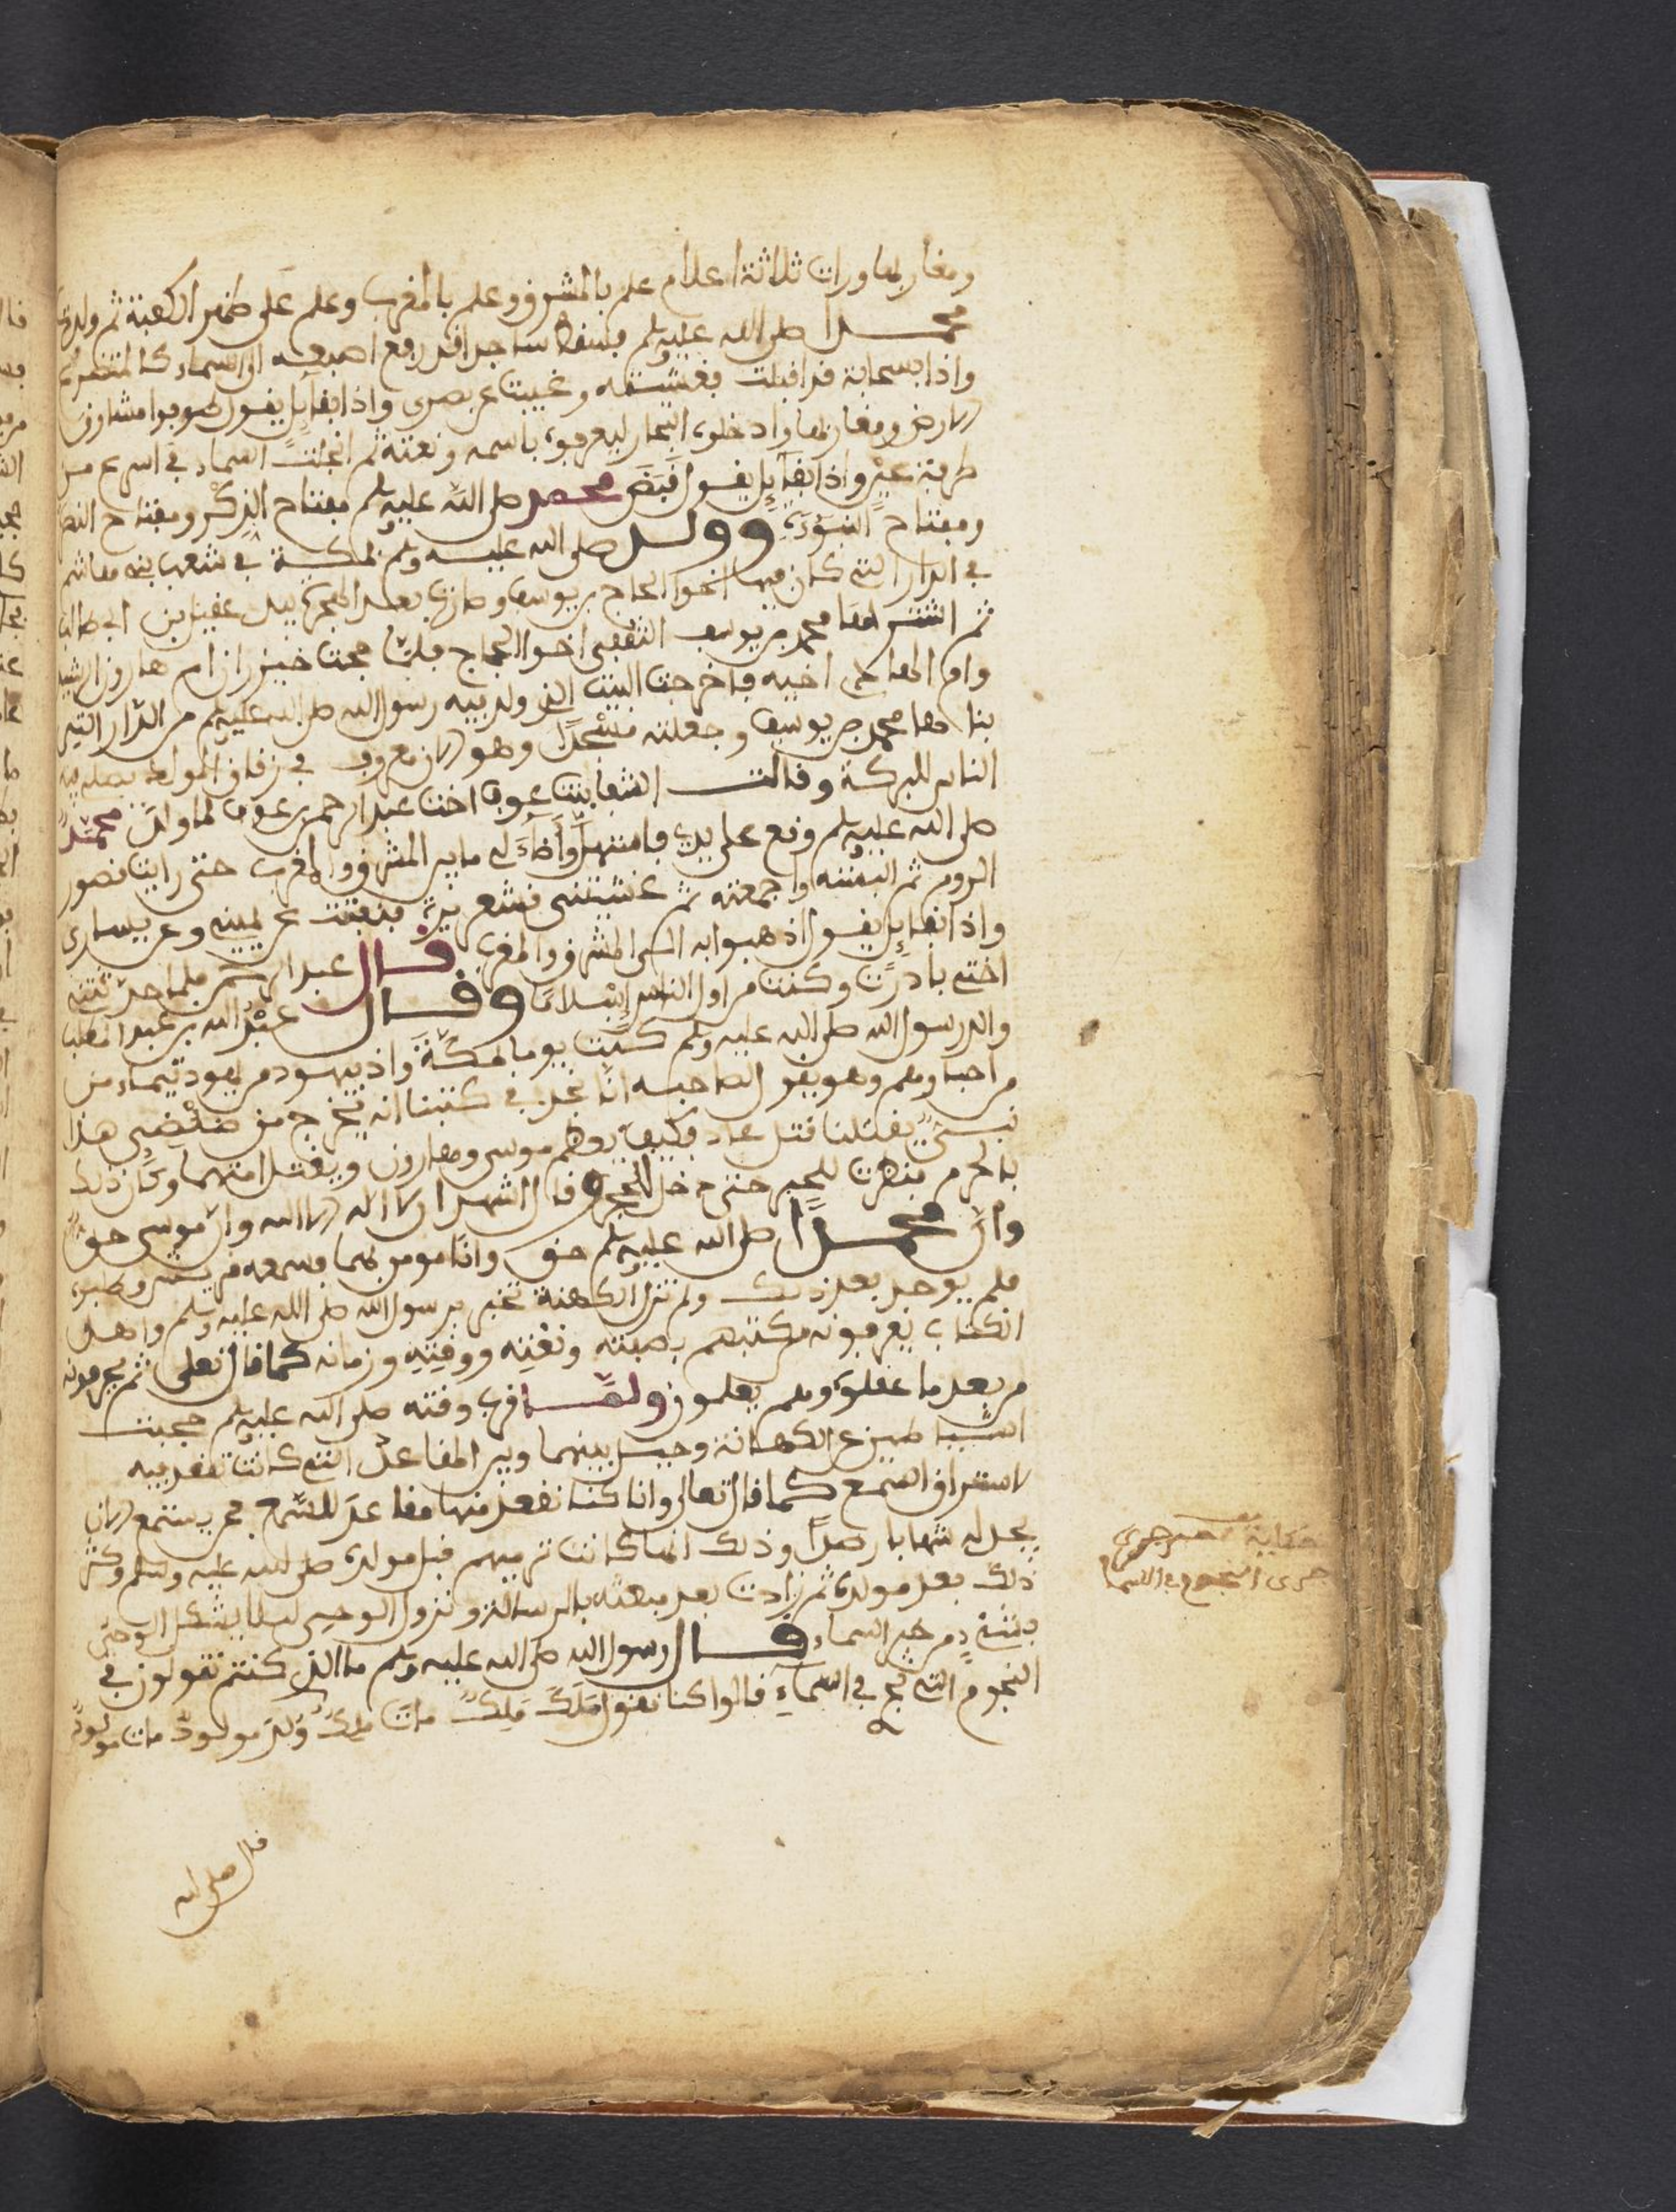 ومغاربها ورات ثلاثة اعلام علم بالمشرق وعلم بالمغرب وعلم على ظهر الكعبة ثم ولدت
محمدا صلى الله عليه وسلم فسقط ساجدا قد رفع اصبعه الى السماء كالمتضرع
واذا بسحابة قد اقبلت فغشيته وغيبت عن بصرى واذا بقائل يقول طوفوا مشارق
الارض ومغاربها وادخلوه البحار ليعرفوه باسمه ونعته ثم انجلت السماء في اسرع من
طرفة عين واذا بقائل يقول قبض محمد صلى الله عليه وسلم مفتاح الذكر ومفتاح النصر
ومفتاح النبوة وولد صلى الله عليه وسلم بمكة في شعب بني هاشم
في الدار التي كان فيها اخوا الحاج بن يوسف وحازها بعد الهجرة عقيل بن ابي طالب
ثم اشتراها محمد بن يوسف الثقفي اخوا الحجاج فلما حجت خيزران ام هارون الرشيد
اخيه فاخرجت البيت الذي ولد فيه رسول الله صلى الله عليه وسلم من الدار التي
بناها محمد بن يوسف وجعلته مسجدا وهو الان معروف في زقاق المولد يصلي فيه
الناس للبركة وقالت الشفا بنت عوف اخت عبد الرحمن بن عوف لما ولد محمدٌ
صلى الله عليه وسلم وقع على يدي فاستهل وأضاء لي ما بين المشرق والمغرب حتى رايت قصور
الروم ثم البسته واجمعته ثم غشيتني قشعريرة فنعتت عن يمينه وعن يساري
واذا بقائل يقول اذهبوا به الى المشرق والمغرب قال عبد الرحمن فلما حدثتني
اختي بادرت وكنت من اول الناس إسلاما وقال عبد الله بن عبد المطلب
والد رسول الله صلى الله عليه وسلم كنت يوما بمكة واذ بيهود من يهود تيماء من
احبارهم وهو يقول لصاحبه انا نجد في كتبنا انه يخرج من ضئضي هذا
نبي يقتلنا قتل عاد فكيف بوهم موسى وهارون ويقتل امتهما وكان ذلك
بالحرم فنظرت للحبر حتى دخل الحجر وقال اشهد ان لا اله الا الله وان موسى حق
وان محمدًا صلى الله عليه وسلم حق وانا مومن بهما فسمعه قريش وطلبوه
فلم يوجد بعد ذلك ولم تزل الكهنة تخبر برسول الله صلى الله عليه وسلم واهل
الكتاب يعرفونه من كتبهم بصفته ونعته ووقته وزمانه كما قال تعلى ثم يحرفونه
من بعد ما عقلوه وهم يعلمون ولمّا قرب وقته صلى الله عليه وسلم حجبت
الشياطين عن الكهانة وحيل بينهما وبين المقاعد التي كانت تقعد فيه
لاستراق السمع كما قال تعالى وانا كنا نقعد منها مقاعد للسمع فمن يستمع الان
يجد له شهابا رصدا وذلك انها كانت ترميهم قبل مولده صلى الله عليه وسلم وكثر
ذلك بعد مولده ثم زادت بعد مبعثه بالرسالة ونزول الوحي ليلا يشكل الوحي
بشيء من خبر السماء قال رسول الله صلى الله عليه وسلم ما الذي كنتم تقولون في
النجوم التي في السماء قالوا كنا نقول مَلَكَ مَلِكٌ مات ملِكٌ وُلِد مولودٌ مات مولودٌ
حكاية
النجوم في السماء